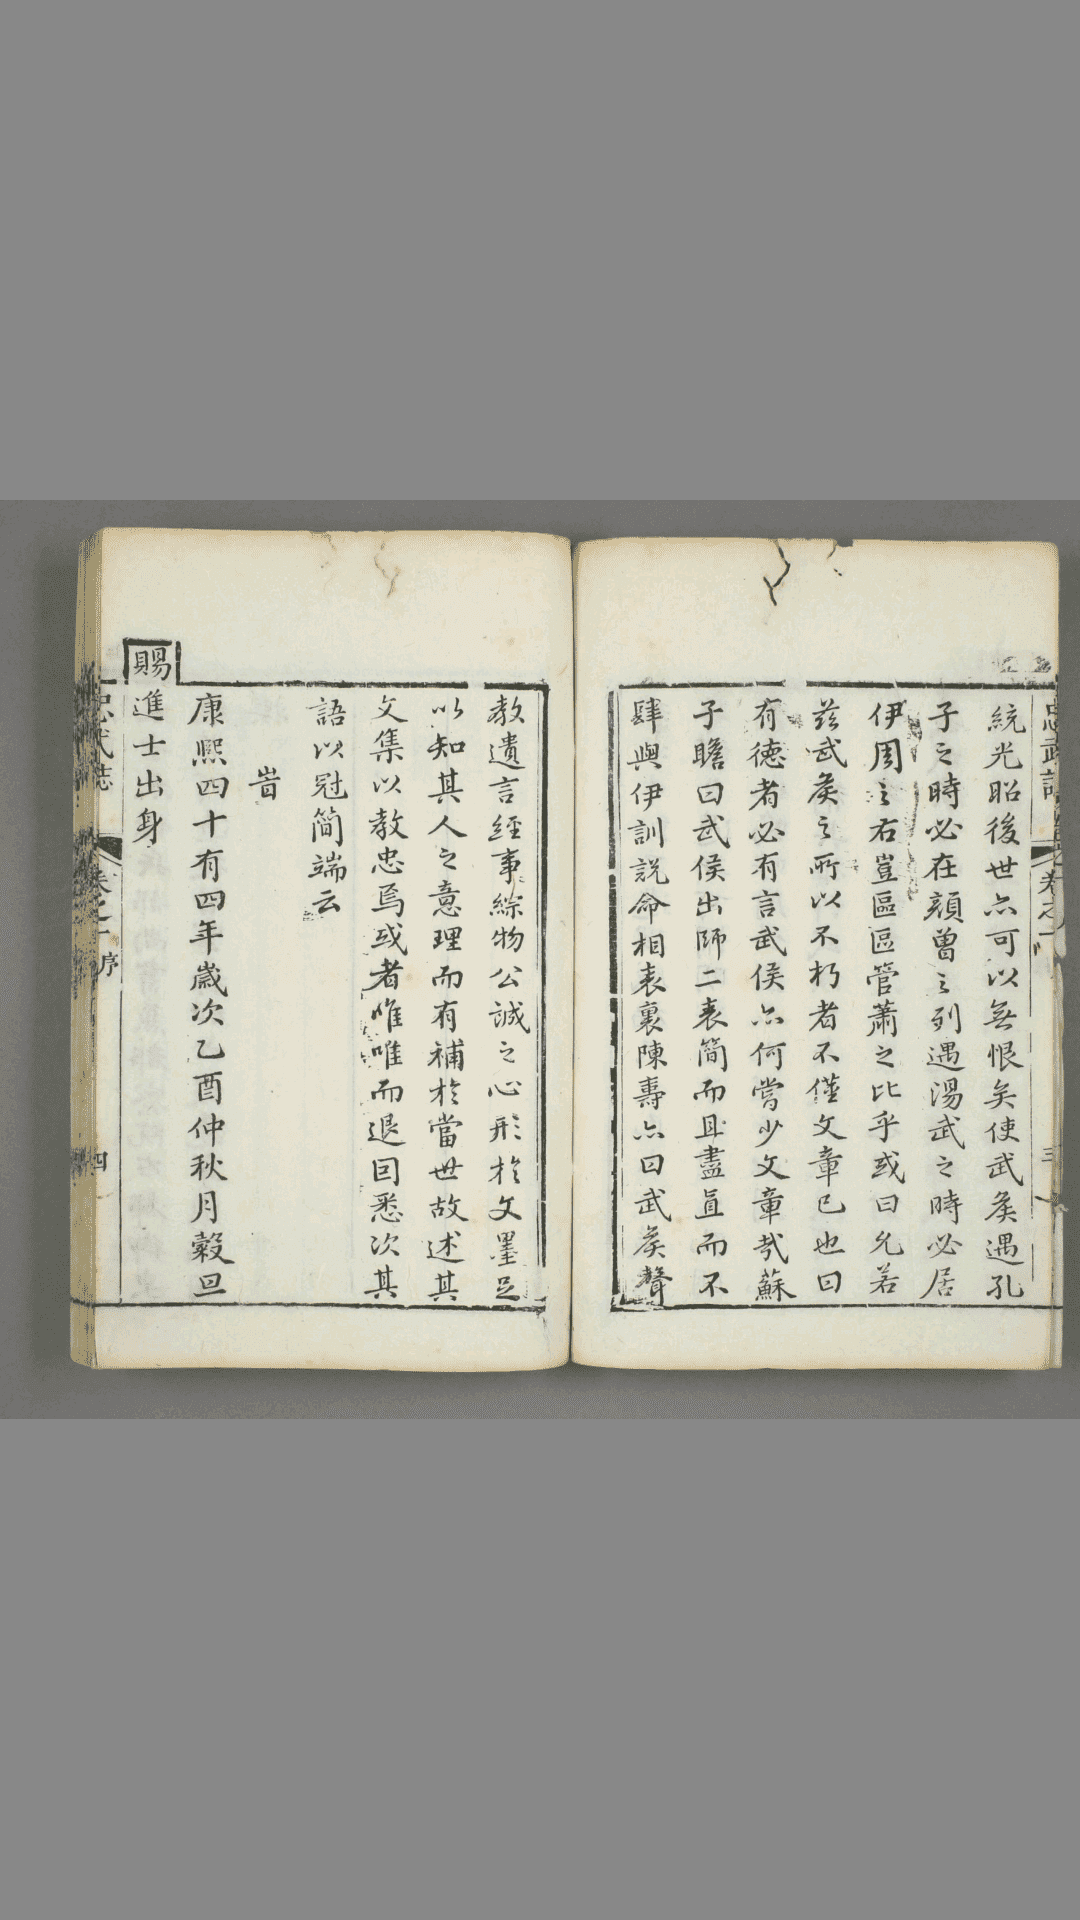 忠武誌
卷之一
三
統光昭後世亦可以無恨矣使武矦遇孔
子之時必在顔曾之列遇湯武之時必居
伊周之右豈區區管蕭之比乎或曰允若
茲武矦之所以不朽者不僅文章已也曰
有德者必有言武侯亦何嘗少文章哉蘇
子瞻曰武侯出師二表簡而且盡直而不
肆與伊訓説命相表裏陳壽亦曰武矦聲
教遺言經事綜物公誠之心形於文墨足
以知其人之意理而有補於當世故述其
文集以教忠焉或者唯唯而退囙悉次其
語以冠簡端云
旹
康熙四十有四年歲次乙酉仲秋月穀旦
賜
進士出身
忠武誌
卷之一 序
四